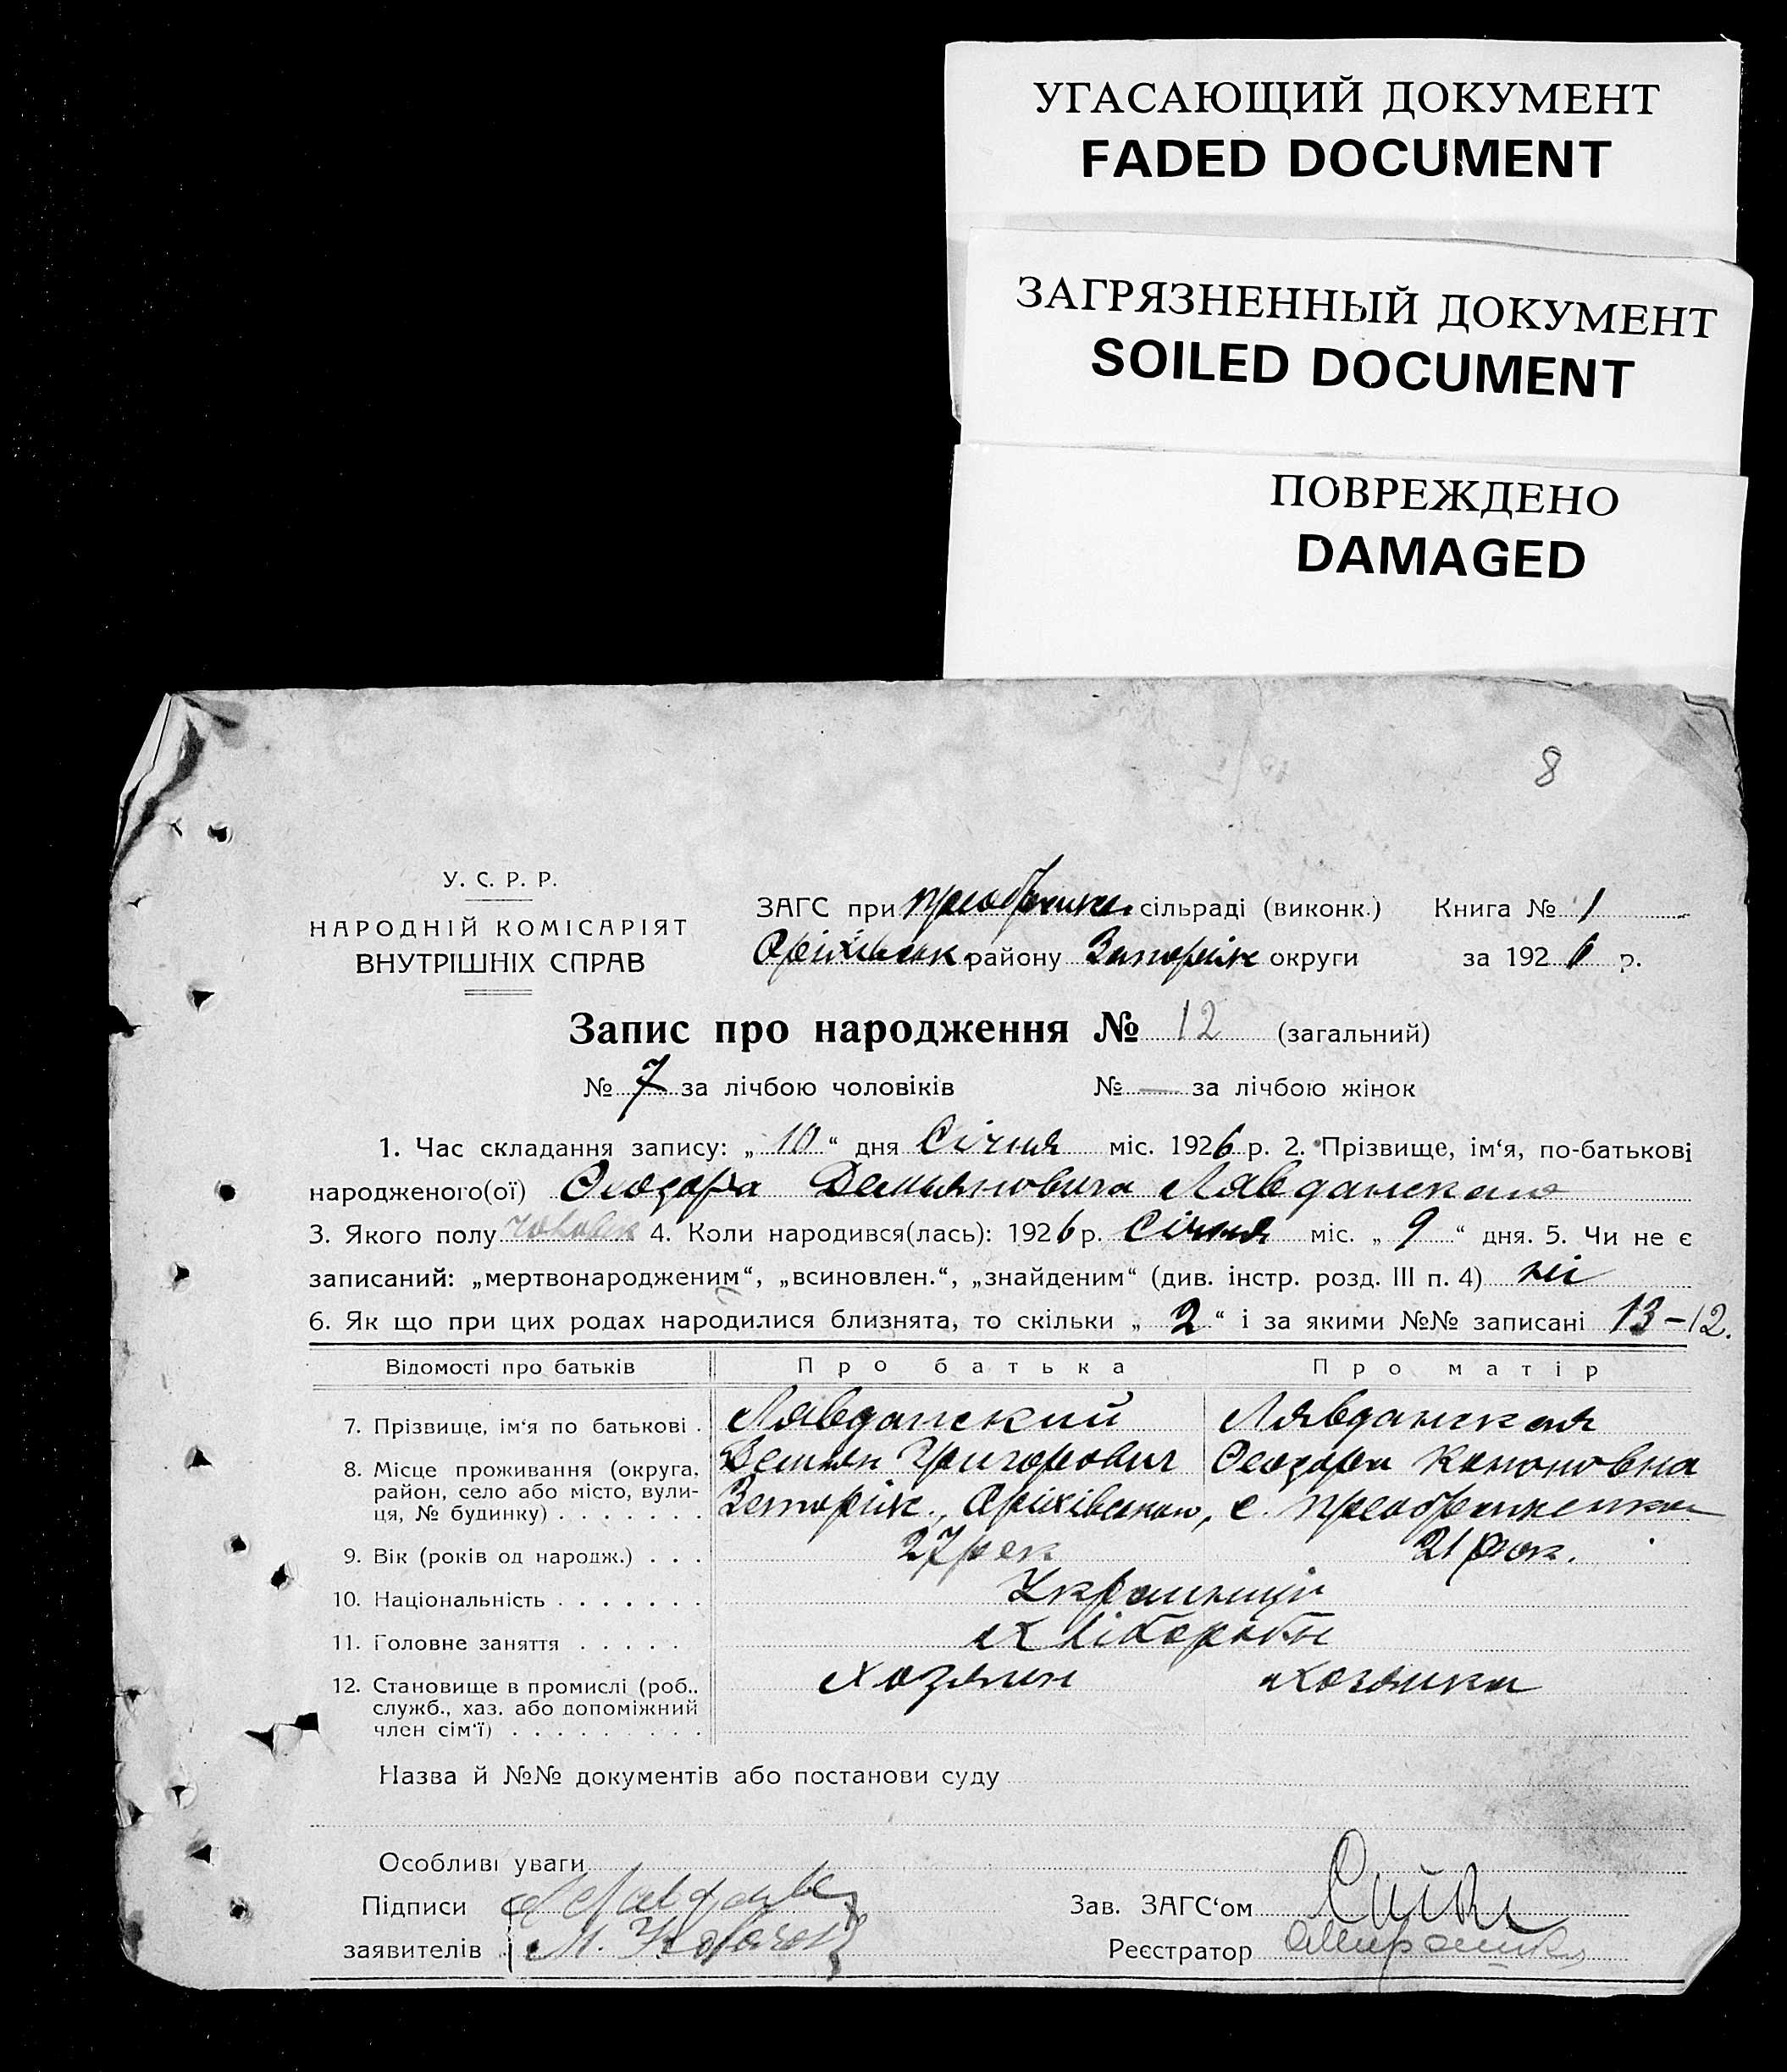 УГАСАЮЩИЙ ДОКУМЕНТ
FADED DOCUMENT
ЗАГРЯЗНЕННЫЙ ДОКУМЕНТ
SOILED DOCUMENT
ПОВРЕЖДЕНО
DAMAGED
8
У. С. Р. Р.
НАРОДНІЙ КОМІСАРІЯТ
ВНУТРІШНІХ СПРАВ
ЗАГС при сільраді (виконк.) Книга № 1
Оріхівськ району Запоріж округи за 1926 р.
Запис про народження № 12 (загальний)
№ 7 за лічбою чоловіків № — за лічбою жінок
1. Час складання запису: „ 10 “ дня Січня міс. 1926 р. 2. Прізвище, ім‘я, по-батькові
народженого(ої) Феодора Демьяновича Лявданского
3. Якого полу чоловік 4. Коли народився(лась): 1926 р. Січня міс. „ 9 “ дня. 5. Чи не є
записаний: „мертвонародженим“, „всиновлен.“, „знайденим“ (див. інстр. розд. III п. 4) ні
6. Як що при цих родах народилися близнята, то скільки „ 2 “ і за якими №№ записані 13–12.
Відомості про батьків Про батька Про матір
7. Прізвище, ім‘я по батькові . Лявданский Лявданская
Демьян Григорович Феодора Кононовна
8. Місце проживання (округа, район, село або місто, вулиця, № будинку) . . . . . . . Запоріж., Оріхівськ, с. Преображенка
9. Вік (років од народж.) . . . 27 рок 21 рок.
10. Національність . . . . . . . Українці
11. Головне заняття . . . . . Хлібороби
12. Становище в промислі (роб., служб., хаз. або допоміжний член сім‘ї) . . . . . . . . . Хозяин Хозяика
Назва й №№ документів або постанови суду
Особливі уваги
Підписи
заявителів
Зав. ЗАГС‘ом
Реєстратор